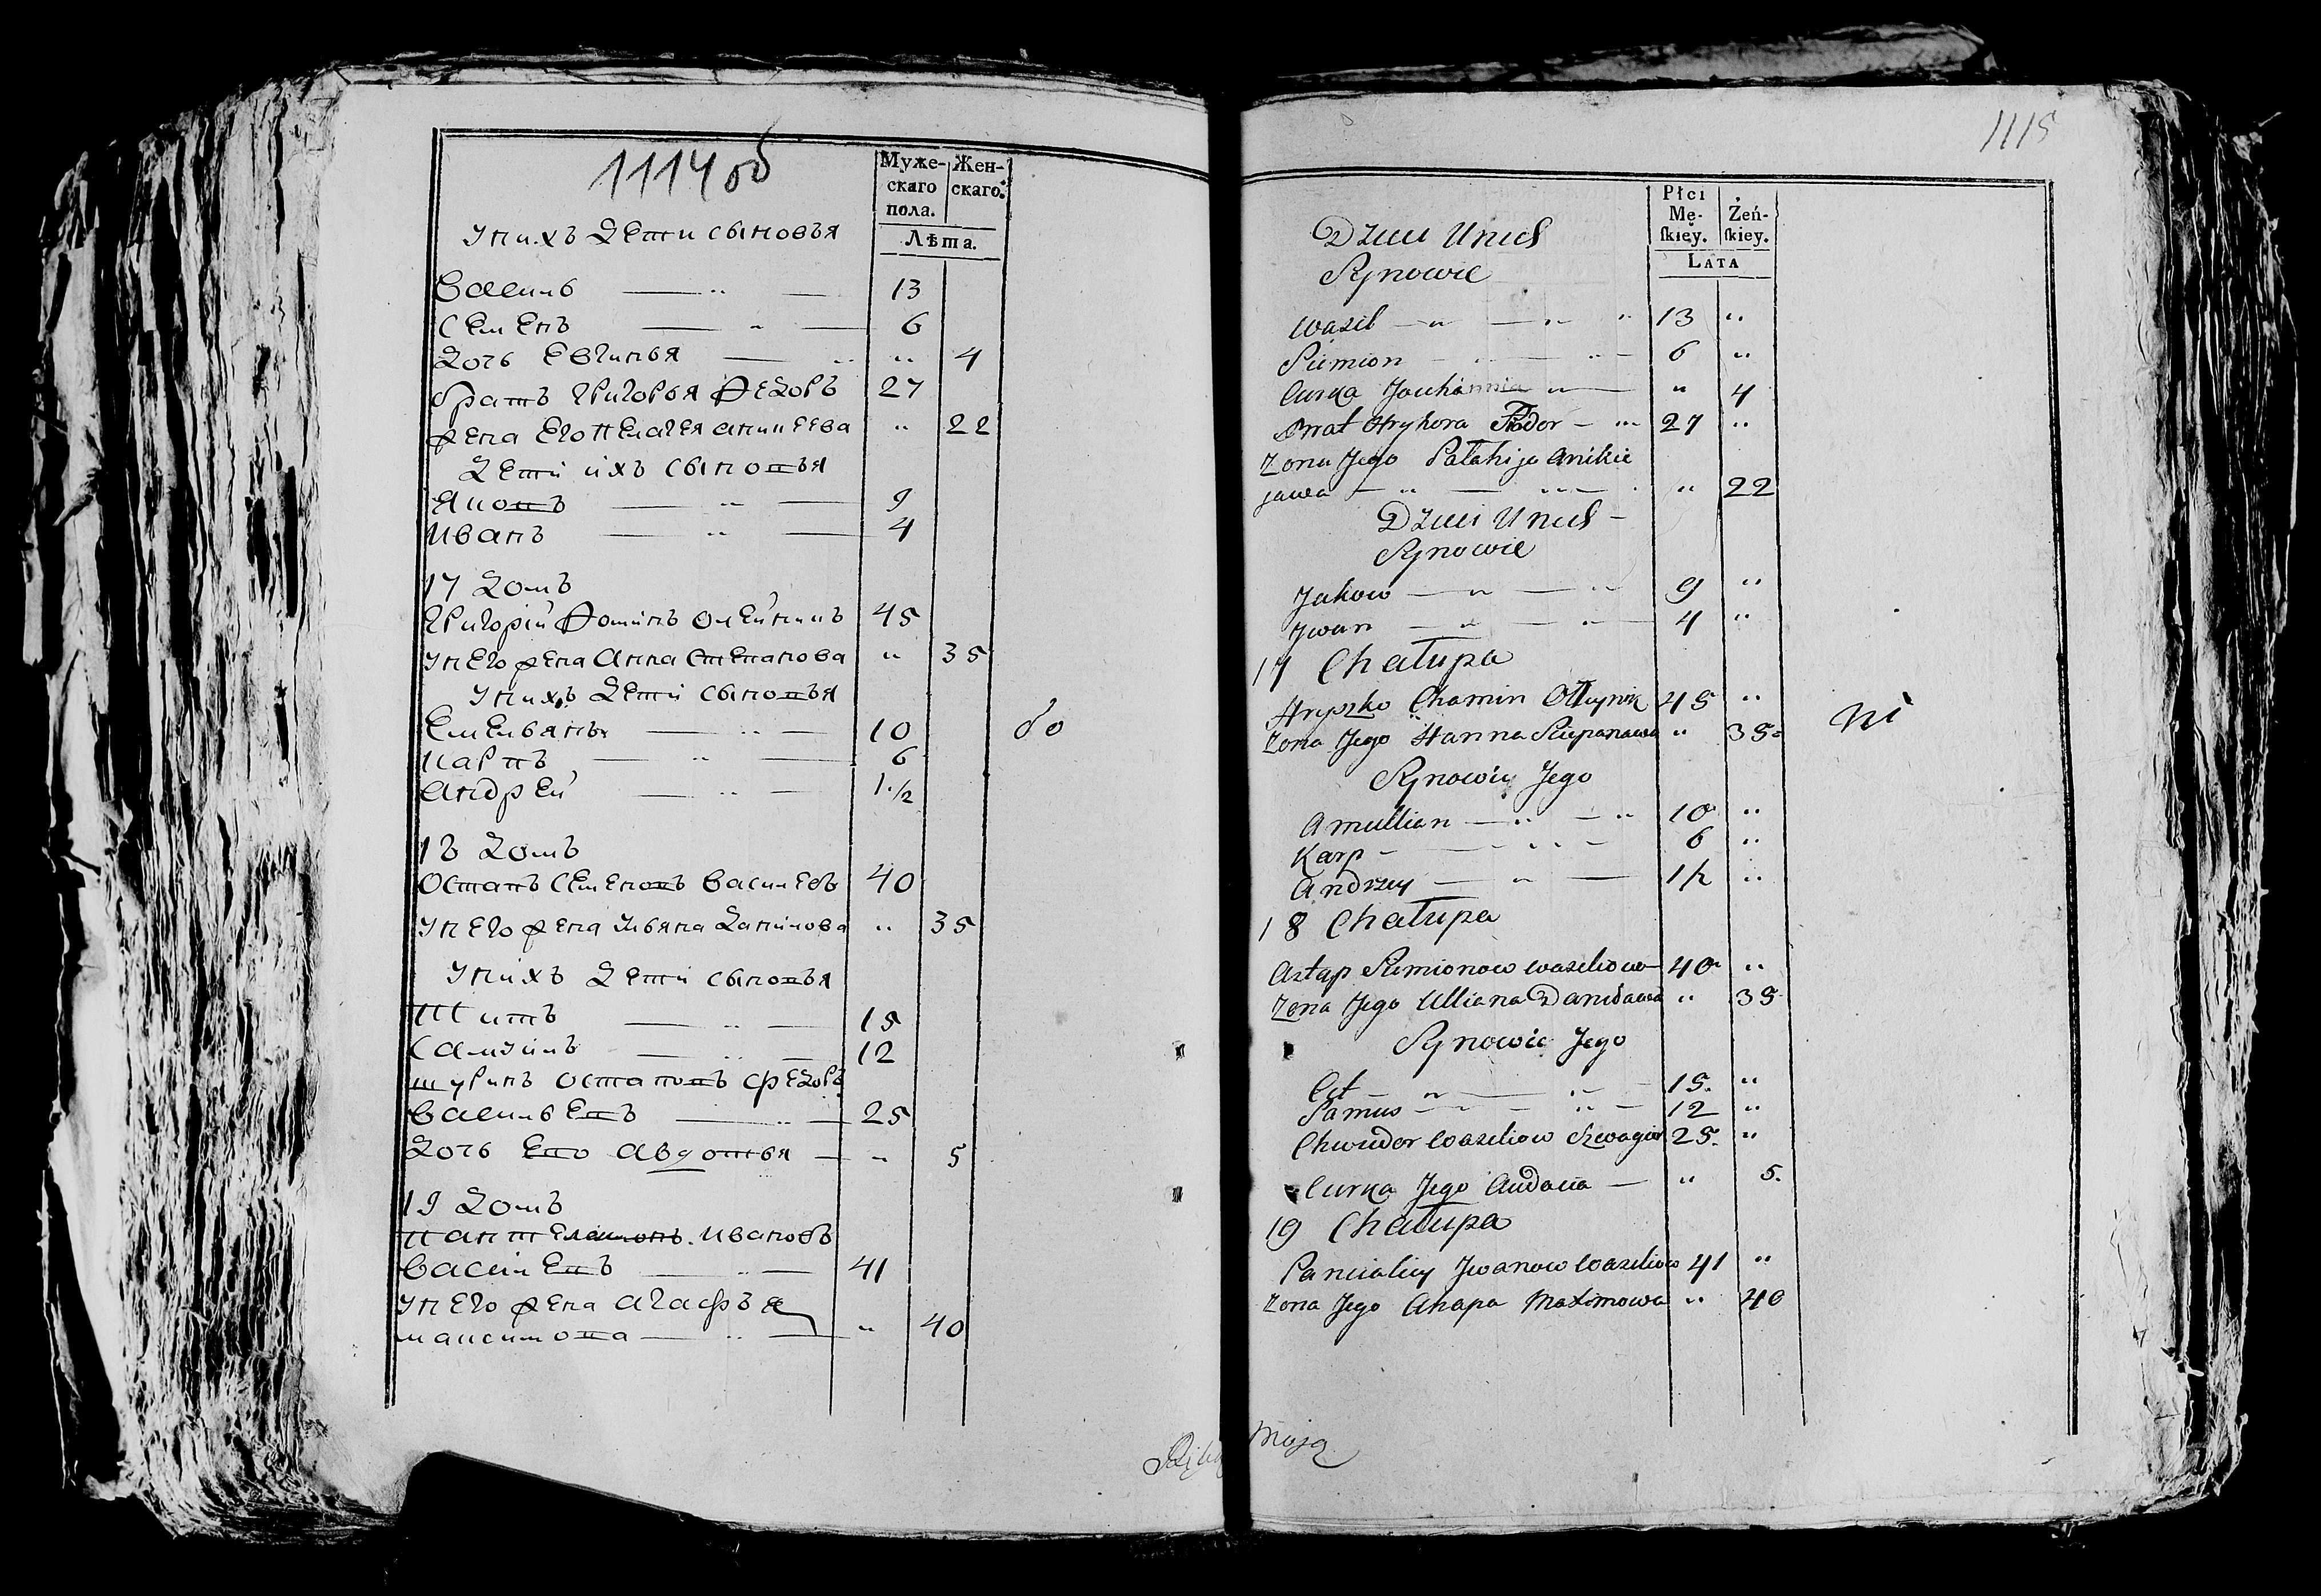 1114 об
Муже-
скаго
пола.
Жен-
скаго.
Лѣта.
У нихъ дети сыновья
Василь 13
Семенъ 6
Дочь Евгинья 4
братъ Григорья Федоръ 27
жена Его Пелагея аникеева 22
дети ихъ сыновья
Яковъ 9
Иванъ 4
17 Домъ
Григорій Фоминъ Олейникъ 45
У него жена Анна Степанова 35
У нихъ дети сыновья
Емельянъ 10
Карпъ 6
Андрей 1 1/2
18 Домъ
Остапъ Семеновъ Василевъ 40
У него жена Ульяна Данилова 35
У нихъ дети сыновья
Титъ 15
Самуилъ 12
шуринъ Остаповъ Федоръ
Васильевъ 25
Дочь Его Авдотья 5
19 Домъ
Пантелеимонъ Ивановъ
Васильевъ 41
У него жена Агафья
Максимова 40
до
1115
Płci
Mę-
skiey.
Żeń-
skiey.
LATA
Dzieci Unich
Synowie
Wasil 13
Siemion 6
Curka Jauhinnia 4
Brat Hryhora Fiodor 27
Zona Jego Pałahija Anikie
jawa 22
Dzieci Unich
Synowie
Jakow 9
Jwan 4
17 Chałupa
Hryszko Chamin Olleynik 45
Zona Jego Hanna Sciepanawa 35
Synowie Jego
Amullian 10
Karp 6
Andrzey 1/2
18 Chałupa
Astap Siemionow Wasiliow 40
Zona Jego Ulliana Daniławа 35
Synowie Jego
Cit 15
Samus 12
Chwiedor Wasiliow Szwagier 25
Curka Jego Audacia 5
19 Chałupa
Pancialey Jwanow Wasiliow 41
Zona Jego Ahapa Maximowa 40
moją